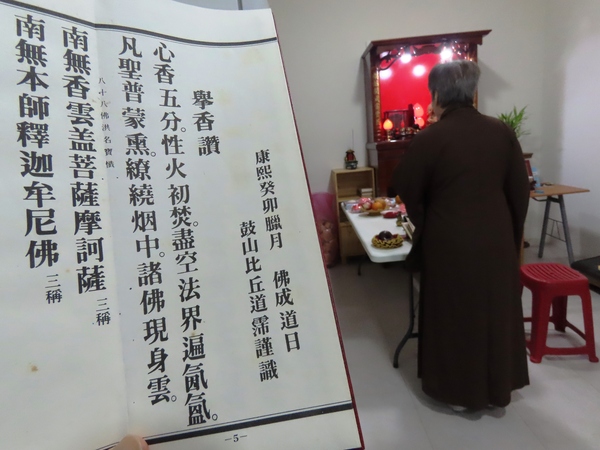 康熙癸卯臘月　佛成道日
鼓山比丘道霈謹識
舉香讚
心香五分。性火初焚。盡空法界遍氤氳。
凡聖普蒙熏。繚繞烟中。諸佛現身雲。
八十八佛洪名寶懺
南無香雲盖菩薩摩訶薩 三稱
南無本師釋迦牟尼佛 三稱
—5—